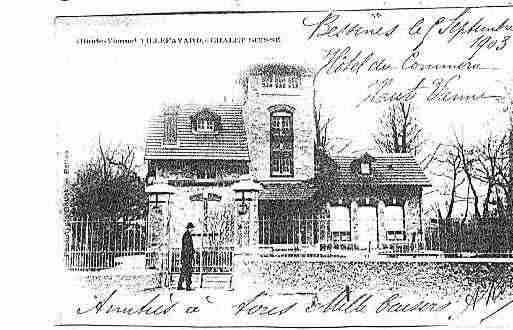 (Haute-Vienne) VILLEFAVARD. - CHALET SUISSE
Bessines le 8 Septembre
1903
Hôtel du Commerce
Haute Vienne
Amitiés à tous 3 Mille baisers